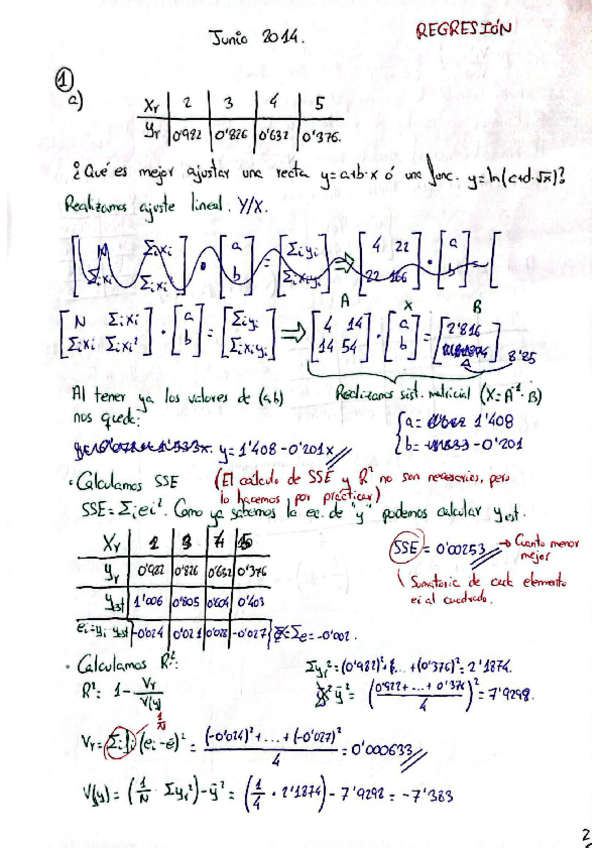 Junio 2014.
REGRESIÓN
1
a)
Xr 2 3 4 5
Yr 0'982 0'826 0'632 0'376.
¿Qué es mejor ajustar una recta y=a+b·x ó una func. y=ln(c+d·√x)?
Realizamos ajuste lineal. Y/X.
[N Σixi Σixi Σixi²] · [a b] = [Σiyi Σixiyi] ⇒ [4 22 22 166] · [a b] = [
A X B
[N Σixi Σixi Σixi²] · [a b] = [Σiyi Σixiyi] ⇒ [4 14 14 54] · [a b] = [2'816 8'85]
Al tener ya los valores de (a,b) nos queda:
Realizamos sist. matricial (X=A⁻¹·B)
a= 1'408
b= -0'201
y=1'408-0'201x
• Calculamos SSE (El cálculo de SSE y R² no son necesarios, pero
lo hacemos por practicar)
SSE=Σiei². Como ya sabemos la ec. de "y" podemos calcular yest.
Xr 2 3 4 5
yr 0'982 0'826 0'632 0'376
yest 1'006 0'805 0'604 0'403
ei=yi-yest -0'024 0'021 0'028 -0'027 Σe=-0'002.
SSE = 0'00253 → Cuanto menor
mejor
Sumatoria de cada elemento
ei al cuadrado.
• Calculamos R²:
R²: 1- Vr/V(y)
Σyr²=(0'982)²+...+(0'376)²=2'1874.
ȳ²= ((0'922+...+0'376)/4)²=7'9298.
1/N
Vr=Σifi(ei-ē)²= ((-0'024)²+...+(-0'027)²)/4 = 0'000633
V(y)=(1/N · Σyr²)-ȳ²=(1/4 · 2'1874)-7'9292=-7'383
2